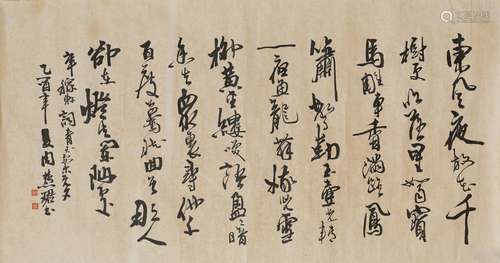 東風夜放花千
樹更吹落星如雨寶
馬雕車香滿路鳳
簫聲動玉壺光轉
一夜魚龍舞蛾兒雪
柳黃金縷笑語盈盈暗
香去眾裏尋他千
百度驀然回首那人
卻在燈火闌珊處
辛稼軒詞青玉案元夕
乙酉年夏周慧珺書